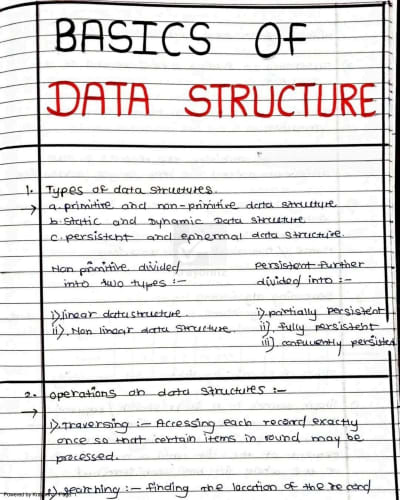 BASICS OF
DATA STRUCTURE
1. Types of data structures.
→ a. primitive and non-primitive data structure
b. static and Dynamic Data structure
c. persistent and ephermal data structure.
Non primitive divided
into two types :-
i) linear data structure.
ii). Non linear data structure.
persistent further
divided into :-
i) partially persistent
ii) fully persistent
iii) confluently persisted
2. operations on data structures :-
→
i). Traversing :- Accessing each record exactly
once so that certain items in round may be
processed.
searching :- finding the location of the record